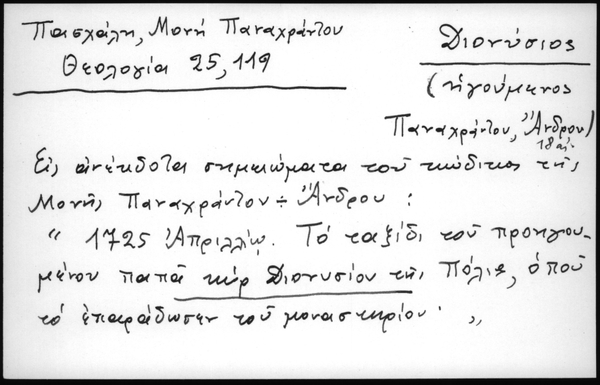 Πασχάλη, Μονή Παναχράντου
Θεολογία 25, 119
Διονύσιος
(ἡγούμενος
Παναχράντου, Ἄνδρου)
18 αἰ.
Εἰς ἀνέκδοτα σημειώματα τοῦ κώδικος τῆς
Μονῆς Παναχράντου ÷ Ἄνδρου :
" 1725 Ἀπριλλίῳ. Τό ταξίδι τοῦ προηγου-
μένου παπᾶ κύρ Διονυσίου τῆς Πόλις, ὁποῦ
τό ἐπαράδωσεν τοῦ μοναστηρίου · "